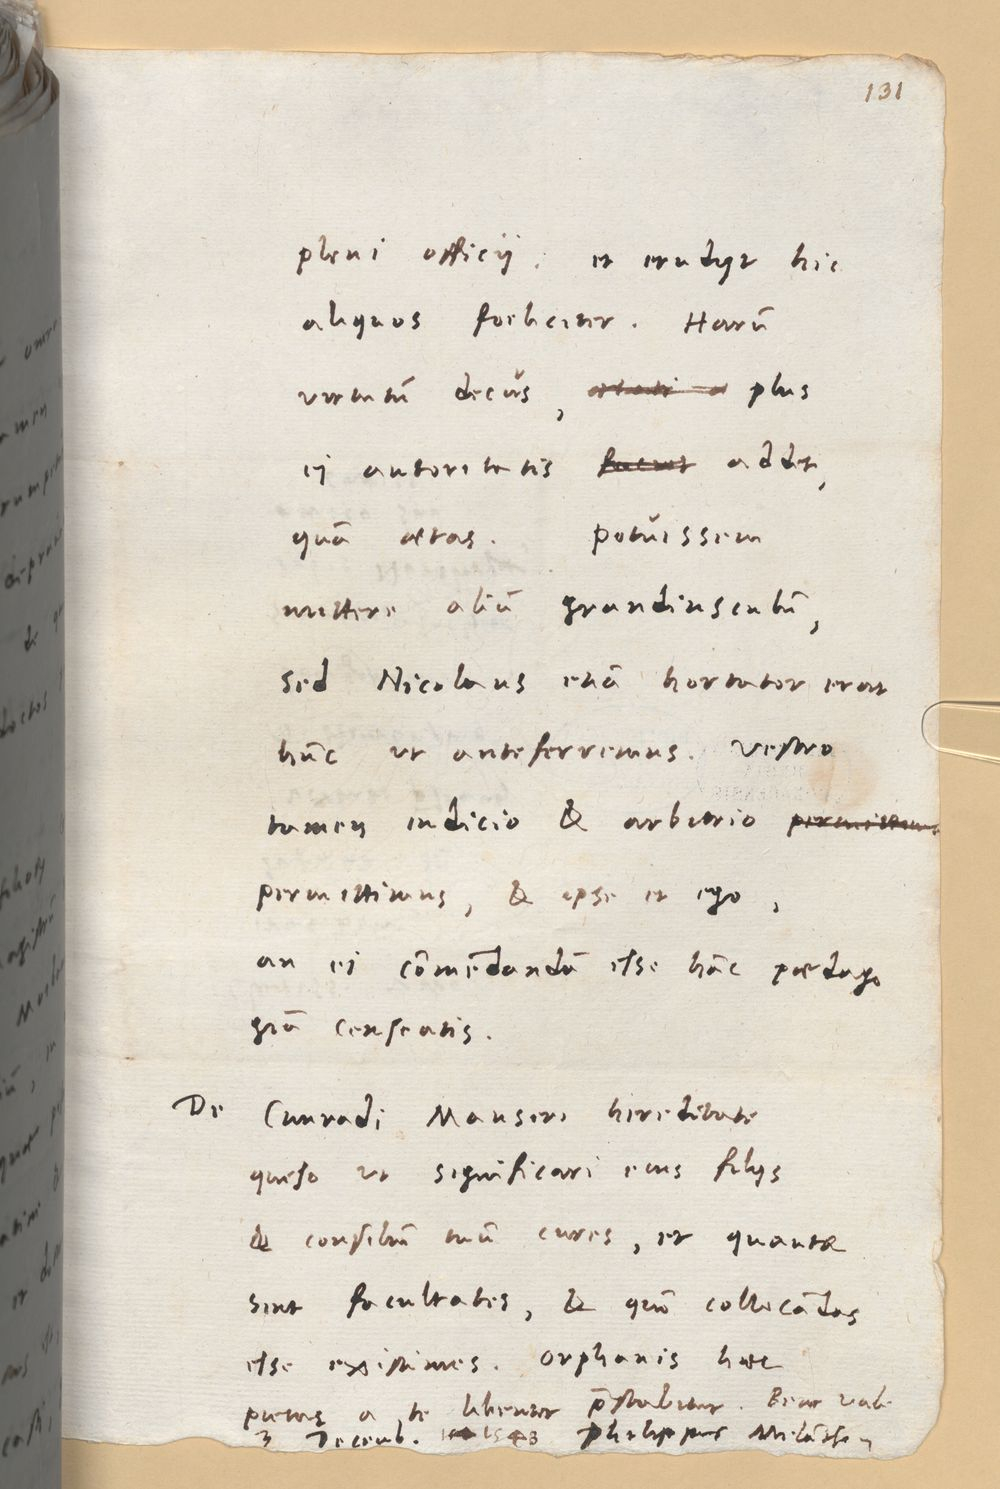 131
pleni officij. et erudijt hic
aliquos foeliciter. Harū
virtutū decŭs, plus
ej autoritatis addet,
quā ætas. potŭissem
mittere aliū grandiusculū,
sed Nicolaus etiā hortator erat
hūc ut anteferremus. vestro
tamen iudicio & arbitrio
permittimus, & ipse et ego,
an ei cōmēdandū esse hāc pædago
giā censeatis.
De Cunradi Mauseri hereditate
queso ut significari eius filijs
& consiliū tuū cures, et quantæ
sint facultates, & quō collocādas
esse existimes. Orphanis hæc
pietas a te libenter p̄stabitur. Bene vale
3 Decemb. 1548 Philippus Melāthon